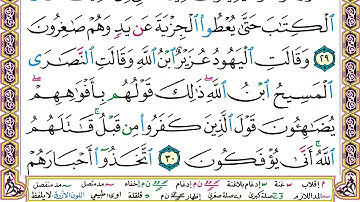 ٱلْكِتَٰبَ حَتَّىٰ يُعْطُوا۟ ٱلْجِزْيَةَ عَن يَدٍ وَهُمْ صَٰغِرُونَ
٢٩ وَقَالَتِ ٱلْيَهُودُ عُزَيْرٌ ٱبْنُ ٱللَّهِ وَقَالَتِ ٱلنَّصَٰرَى
ٱلْمَسِيحُ ٱبْنُ ٱللَّهِ ۖ ذَٰلِكَ قَوْلُهُم بِأَفْوَٰهِهِمْ ۖ
يُضَٰهِـُٔونَ قَوْلَ ٱلَّذِينَ كَفَرُوا۟ مِن قَبْلُ ۚ قَٰتَلَهُمُ
ٱللَّهُ ۚ أَنَّىٰ يُؤْفَكُونَ ٣٠ ٱتَّخَذُوٓا۟ أَحْبَارَهُمْ